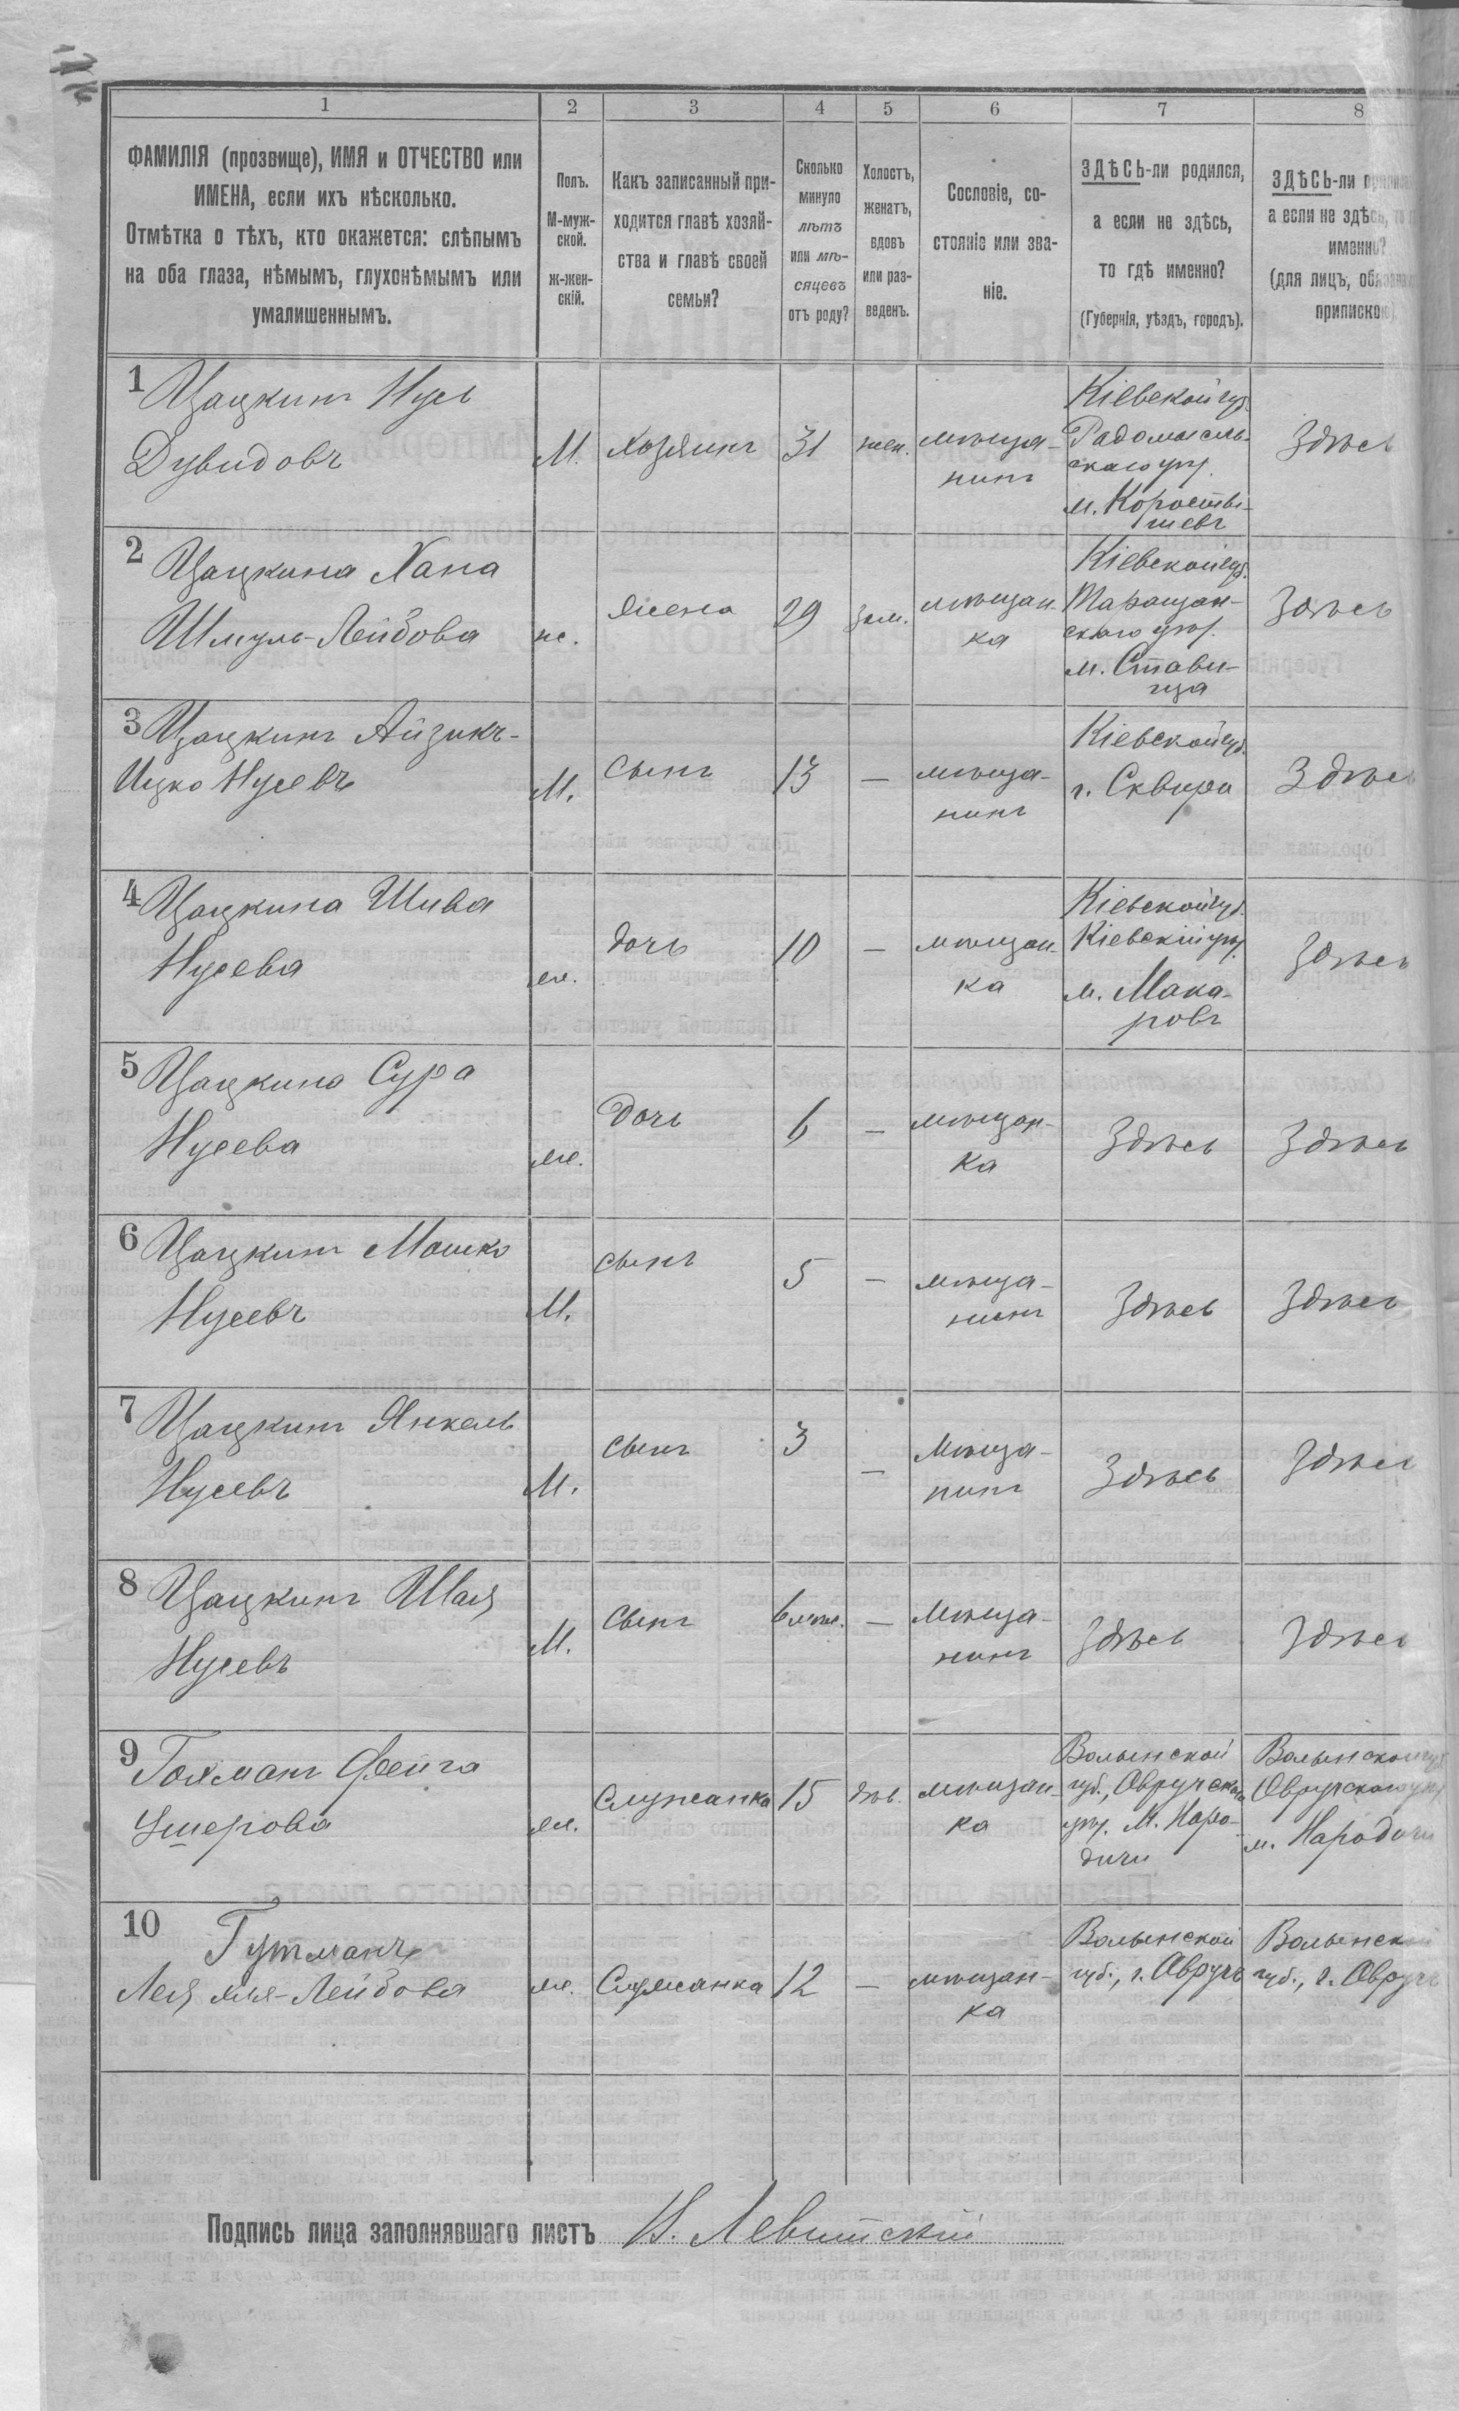 1 2 3 4 5 6 7 8
ФАМИЛІЯ (прозвище), ИМЯ и ОТЧЕСТВО или
ИМЕНА, если ихъ нѣсколько.
Отмѣтка о тѣхъ, кто окажется: слѣпымъ
на оба глаза, нѣмымъ, глухонѣмымъ или
умалишеннымъ.
Полъ.
М-муж-
ской.
ж-жен-
скій.
Какъ записанный при-
ходится главѣ хозяй-
ства и главѣ своей
семьи?
Сколько
минуло
лѣтъ
или мѣ-
сяцевъ
отъ роду?
Холостъ,
женатъ,
вдовъ
или раз-
веденъ.
Сословіе, со-
стояніе или зва-
ніе.
ЗДѢСЬ-ли родился,
а если не здѣсь,
то гдѣ именно?
(Губернія, уѣздъ, городъ).
ЗДѢСЬ-ли
а если не здѣсь,
именно?
(для лицъ,
припискою)
1 Цацкинъ Нусь
Дувидовъ
М.
Хозяинъ
31
жен.
мѣща-
нинъ
Кіевской губ.
Радомысль-
скаго уѣз.
м. Коросты-
шевъ
Здѣсь
2 Цацкина Хана
Шмуль-Лейбова
ж.
Жена
29
зам.
мѣщан-
ка
Кіевской губ.
Таращан-
скаго уѣз.
м. Стави-
ща
Здѣсь
3 Цацкинъ Айзикъ-
Ицко Нусевъ
М.
Сынъ
13
—
мѣща-
нинъ
Кіевской губ.
г. Сквира
Здѣсь
4 Цацкина Шива
Нусева
ж.
Дочь
10
—
мѣщан-
ка
Кіевской губ.
Кіевскій уѣз.
м. Мака-
ровъ
Здѣсь
5 Цацкина Сура
Нусева
ж.
Дочь
6
—
мѣщан-
ка
Здѣсь
Здѣсь
6 Цацкинъ Мошко
Нусевъ
М.
Сынъ
5
—
мѣща-
нинъ
Здѣсь
Здѣсь
7 Цацкинъ Янкель
Нусевъ
М.
Сынъ
3
—
мѣща-
нинъ
Здѣсь
Здѣсь
8 Цацкинъ Шая
Нусевъ
М.
Сынъ
6 мѣс.
—
мѣща-
нинъ
Здѣсь
Здѣсь
9 Гохманъ Фейга
Ушерова
ж.
Служанка
15
дѣв.
мѣщан-
ка
Волынской
губ., Овручскаго
уѣз. М. Наро-
дичи
Волынской губ.
Овручскаго уѣз.
м. Народичи
10 Гутманъ
Лея Лейбова
ж.
Служанка
12
—
мѣщан-
ка
Волынской
губ., г. Овручъ
Волынской
губ., г. Овручъ
Подпись лица заполнявшаго листъ Н. Левитскій